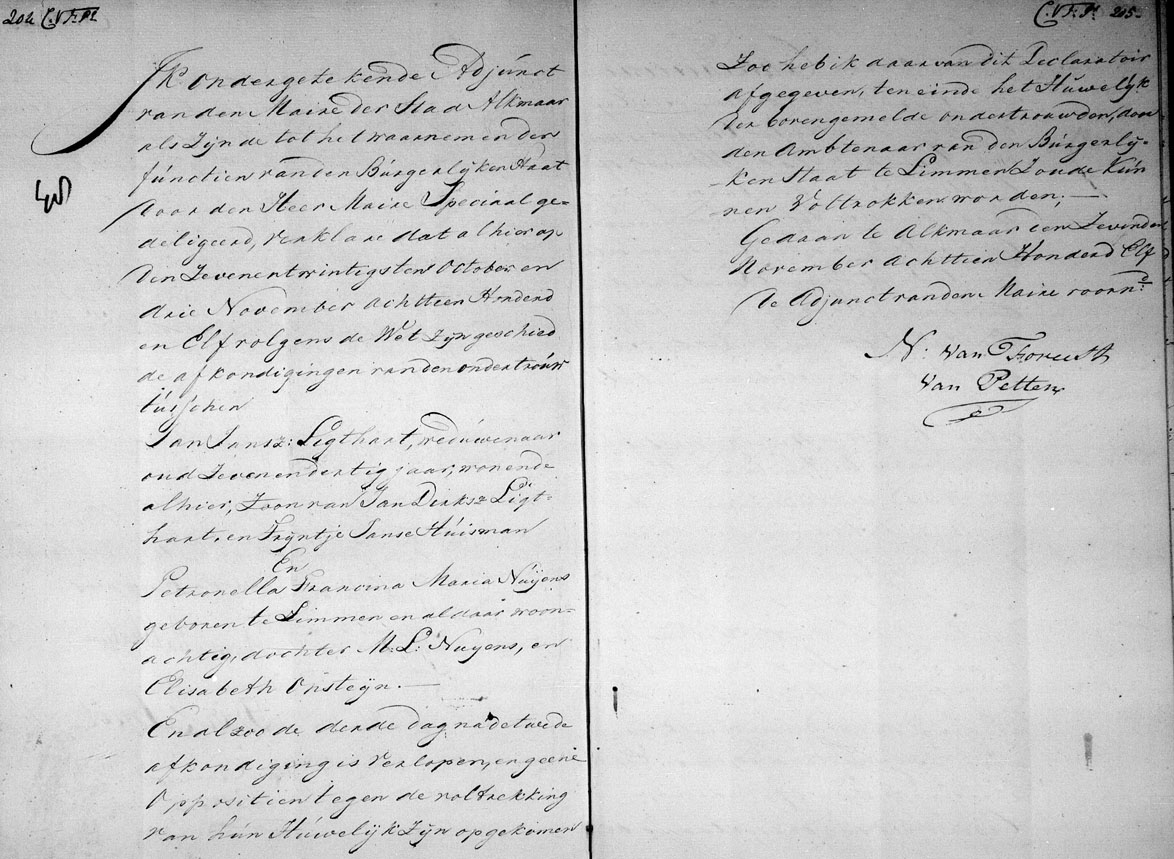 204 C.V.F.Pt
Ik ondergetekende Adjúnct
van den Maire der Stad Alkmaar
als Zijnde tot het waarnemen der
functien van den Búrgerlyken Staat
door den Heer Maire Speciaal ge-
deligeerd, verklare dat alhier op
den Zevenentwintigsten October en
drie November achttien Honderd
en Elf volgens de Wet zijn geschied
de afkondigingen van den ondertroúw
tússchen
Jan Jansz: Ligthart, weduwenaar
oud Zevenendertig jaar, wonende
alhier, Zoon van Jan Dirksz Ligt-
hart, en Tryntje Janse Húisman
En
Petronella Francina Maria Nuÿens
geboren te Limmen en aldaar woon-
achtig, dochter M: L: Nuyens, en
Elisabeth Onsteÿn. —
En alzoo de derde dag na de twede
afkondiging is verlopen, en geene
Oppositien tegen de voltrekking
van hún Húwelijk Zyn opgekomen
C.V.F.Pt 205
Zoo heb ik daar van dit Declaratoir
afgegeven, ten einde het Húwelyk
der bovengemelde ondertrouwden, door
den Ambtenaar van den Búrgerly-
ken Staat te Limmen Zoude Kún-
nen Voltrokken worden; —
Gedaan te Alkmaar den Zevenden
November achttien Honderd Elf
de Adjunct van den Maire voornd
N: van Foreest
van Petten